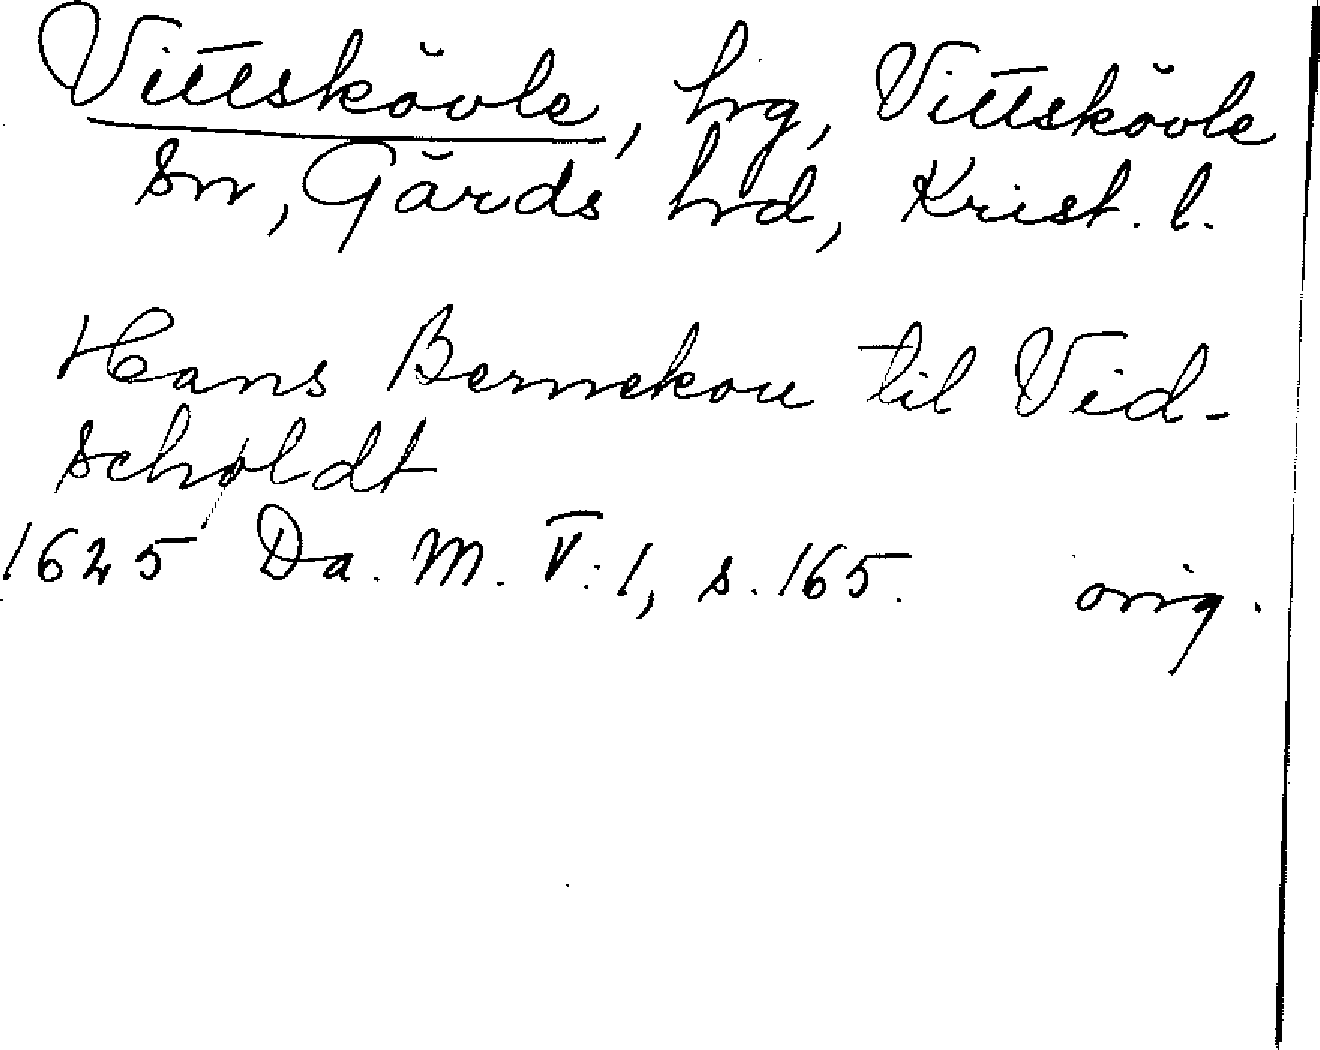 Vittskövle, hrg, Vittskövle
sn, Gärds hrd, Krist. l.
Hans Bernekou til Vid-
schøldt
1625 Da. M. V: 1, s. 165. orig.